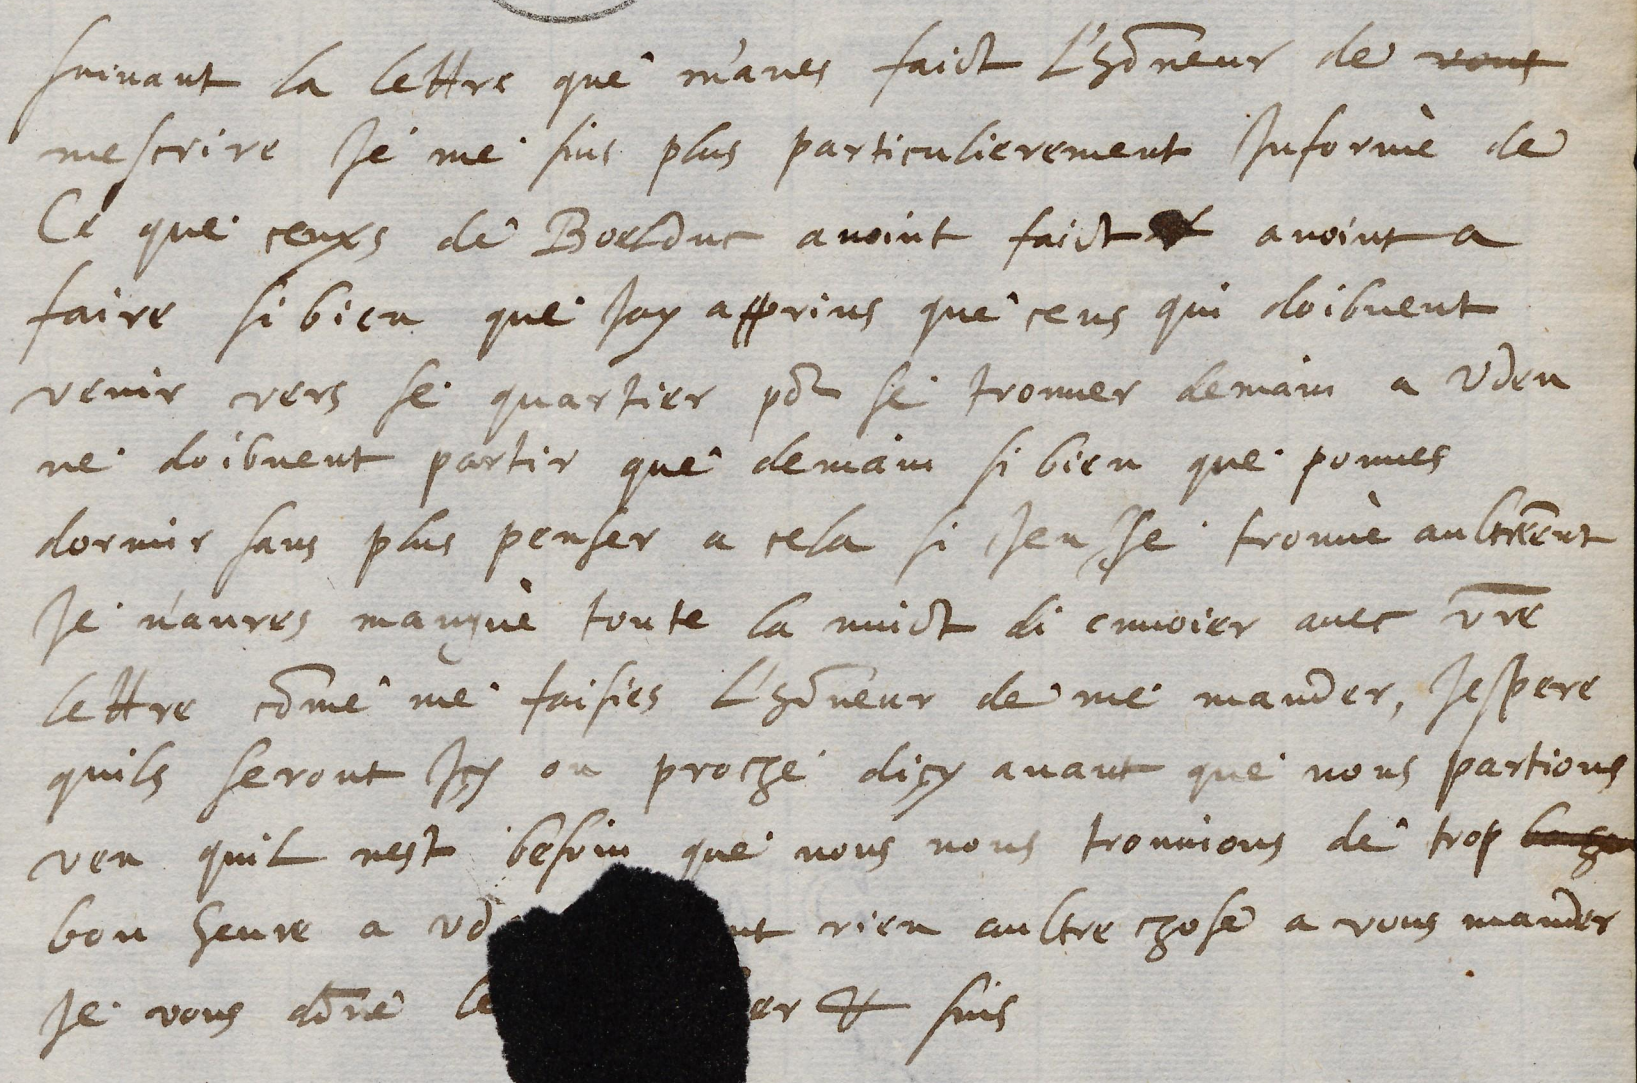 suivant la lettre que m'aves faict L'hōneur de vous
mescrire Je me suis plus particulierement Informè de
Ce que ceuxs de Boelduc avoint faict et avoint a
faire si bien que Jay apprius que ceus qui doibvent
venir vers se quartier po~ se trouver demain a Uden
ne doibvent partir que demain si bien que pouves
dormir sans plus penser a cela si Jeusse trouvè aultrem̄ent
Je n'aures manquè toute la nuict di envoier avec vr̄e
lettre cōme me faisies L'hōneur de me mander, Jespere
quils seront Jcy ou proche dicy avant que nous partions
veu quil nest besoin que nous nous trouvions de trop
bon heure a Ud nt rien aultre chose a vous mander
Je vous dōne le er & suis